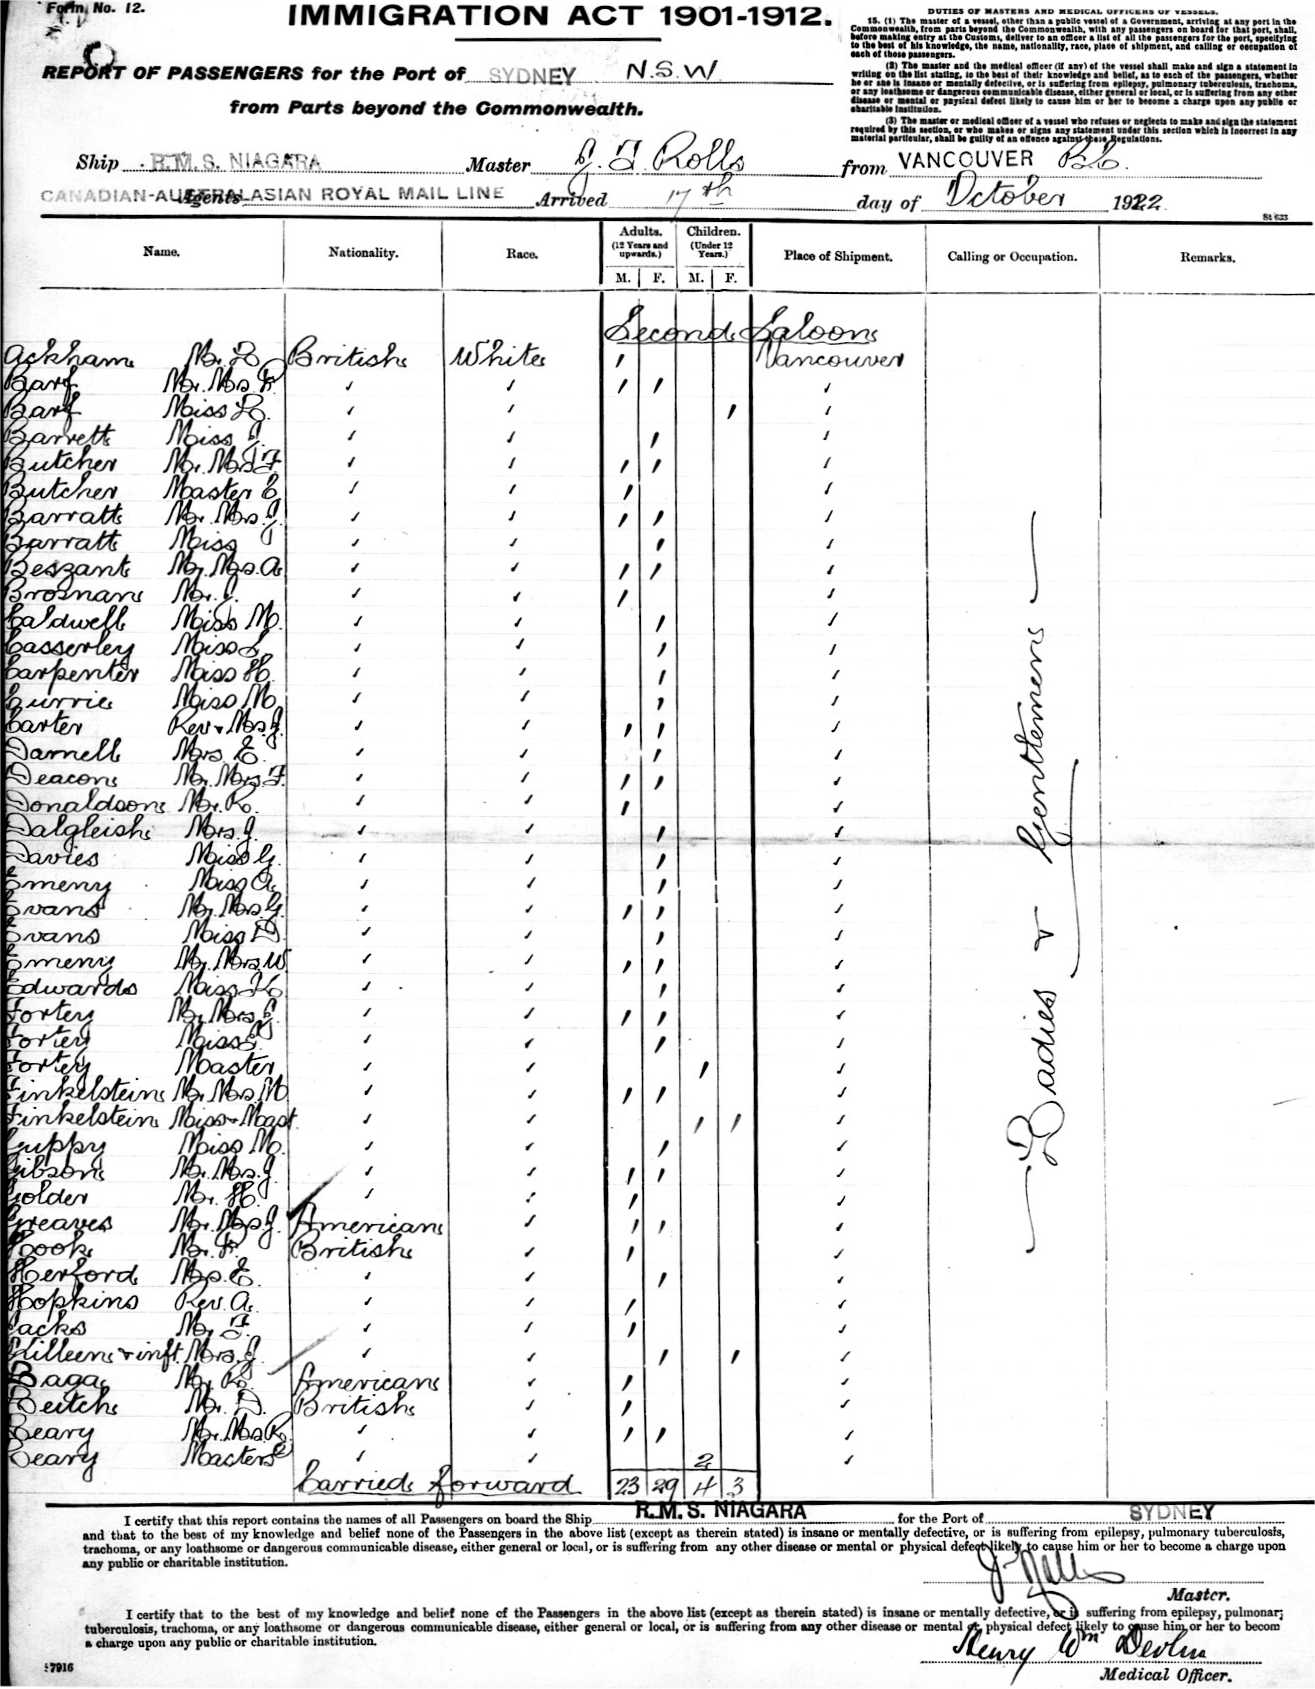 Form No. 12.
IMMIGRATION ACT 1901-1912.
REPORT OF PASSENGERS for the Port of SYDNEY N.S.W
from Parts beyond the Commonwealth.
DUTIES OF MASTERS AND MEDICAL OFFICERS OF VESSELS.
15. (1) The master of a vessel, other than a public vessel of a Government, arriving at any port in the
Commonwealth, from parts beyond the Commonwealth, with any passengers on board for that port, shall,
before making entry at the Customs, deliver to an officer a list of all the passengers for the port, specifying
to the best of his knowledge, the name, nationality, race, place of shipment, and calling or occupation of
each of those passengers.
(2) The master and the medical officer (if any) of the vessel shall make and sign a statement in
writing on the list stating, to the best of their knowledge and belief, as to each of the passengers, whether
he or she is insane or mentally defective, or is suffering from epilepsy, pulmonary tuberculosis, trachoma,
or any loathsome or dangerous communicable disease, either general or local, or is suffering from any other
disease or mental or physical defect likely to cause him or her to become a charge upon any public or
charitable institution.
(3) The master or medical officer of a vessel who refuses or neglects to make and sign the statement
required by this section, or who makes or signs any statement under this section which is incorrect in any
material particular, shall be guilty of an offence against these Regulations.
Ship R.M.S. NIAGARA Master J. T. Rolls from VANCOUVER B.C.
CANADIAN-AUSTRALASIAN ROYAL MAIL LINE Agents Arrived 17th day of October 1922.
St 633
Name. Nationality. Race. Adults. (12 Years and upwards.) M. F. Children. (Under 12 Years.) M. F. Place of Shipment. Calling or Occupation. Remarks.
Second Saloon
Ackham Mr. British White ' Vancouver
Barf Mr. Mrs F. ✓ ✓ ' ' ✓
Barf Miss ✓ ✓ ' ✓
Barrett Miss ✓ ✓ ' ✓
Butcher Mr. Mrs ✓ ✓ ' ' ✓
Butcher Master E. ✓ ✓ ' ✓
Barratt Mr. Mrs. J. ✓ ✓ ' ' ✓
Barratt Miss ✓ ✓ ' ✓
Beszant Mr. Mrs. A. ✓ ✓ ' ' ✓
Brosnan Mr. J. ✓ ✓ ' ✓
Caldwell Miss M. ✓ ✓ ' ✓
Casserley Miss ✓ ✓ ' ✓
Carpenter Miss H. ✓ ✓ ' ✓
Currie Miss M. ✓ ✓ ' ✓
Carter Rev + Mrs J. ✓ ✓ ' ' ✓
Darnell Mrs E. ✓ ✓ ' ✓
Deacon Mr. Mrs. F. ✓ ✓ ' ' ✓
Donaldson Mr. R. ✓ ✓ ' ✓
Dalgleish Mrs. J. ✓ ✓ ' ✓
Davies Miss G. ✓ ✓ ' ✓
Emeny Miss A. ✓ ✓ ' ✓
Evans Mr. Mrs G. ✓ ✓ ' ' ✓
Evans Miss D. ✓ ✓ ' ✓
Emeny Mr. Mrs. W ✓ ✓ ' ' ✓
Edwards Miss K. ✓ ✓ ' ✓
Fortey Mr. Mrs. ✓ ✓ ' ' ✓
Fortey Miss ✓ ✓ ' ✓
Fortey Master ✓ ✓ ' ✓
Finkelstein Mr. Mrs. M ✓ ✓ ' ' ✓
Finkelstein Miss + Mast. ✓ ✓ ' ' ✓
Guppy Miss M. ✓ ✓ ' ✓
Gibson Mr. Mrs. J. ✓ ✓ ' ' ✓
Golder Mr. H. ✓ ✓ ' ✓
Greaves Mr. Mrs J. American ✓ ' ' ✓
Hook Mr. F. British ✓ ' ✓
Herford Mrs. E. ✓ ✓ ' ✓
Hopkins Rev. A. ✓ ✓ ' ✓
Jacks Mr. ✓ ✓ ' ✓
Killeen + inft Mrs. J. ✓ ✓ ' ' ✓
Laga Mr. R. American ✓ ' ✓
Leitch Mr. D. British ✓ ' ✓
Leary Mr. Mrs. R. ✓ ✓ ' ' ✓
Leary Masters ✓ ✓ 2 ✓
Carried forward 23 29 4 3
Ladies + Gentlemen
I certify that this report contains the names of all Passengers on board the Ship R.M.S. NIAGARA for the Port of SYDNEY
and that to the best of my knowledge and belief none of the Passengers in the above list (except as therein stated) is insane or mentally defective, or is suffering from epilepsy, pulmonary tuberculosis,
trachoma, or any loathsome or dangerous communicable disease, either general or local, or is suffering from any other disease or mental or physical defect likely to cause him or her to become a charge upon
any public or charitable institution.
J. Rolls
Master.
I certify that to the best of my knowledge and belief none of the Passengers in the above list (except as therein stated) is insane or mentally defective, or is suffering from epilepsy, pulmonar;
tuberculosis, trachoma, or any loathsome or dangerous communicable disease, either general or local, or is suffering from any other disease or mental or physical defect likely to cause him or her to becom
a charge upon any public or charitable institution.
Henry Wm Devlin
Medical Officer.
7916